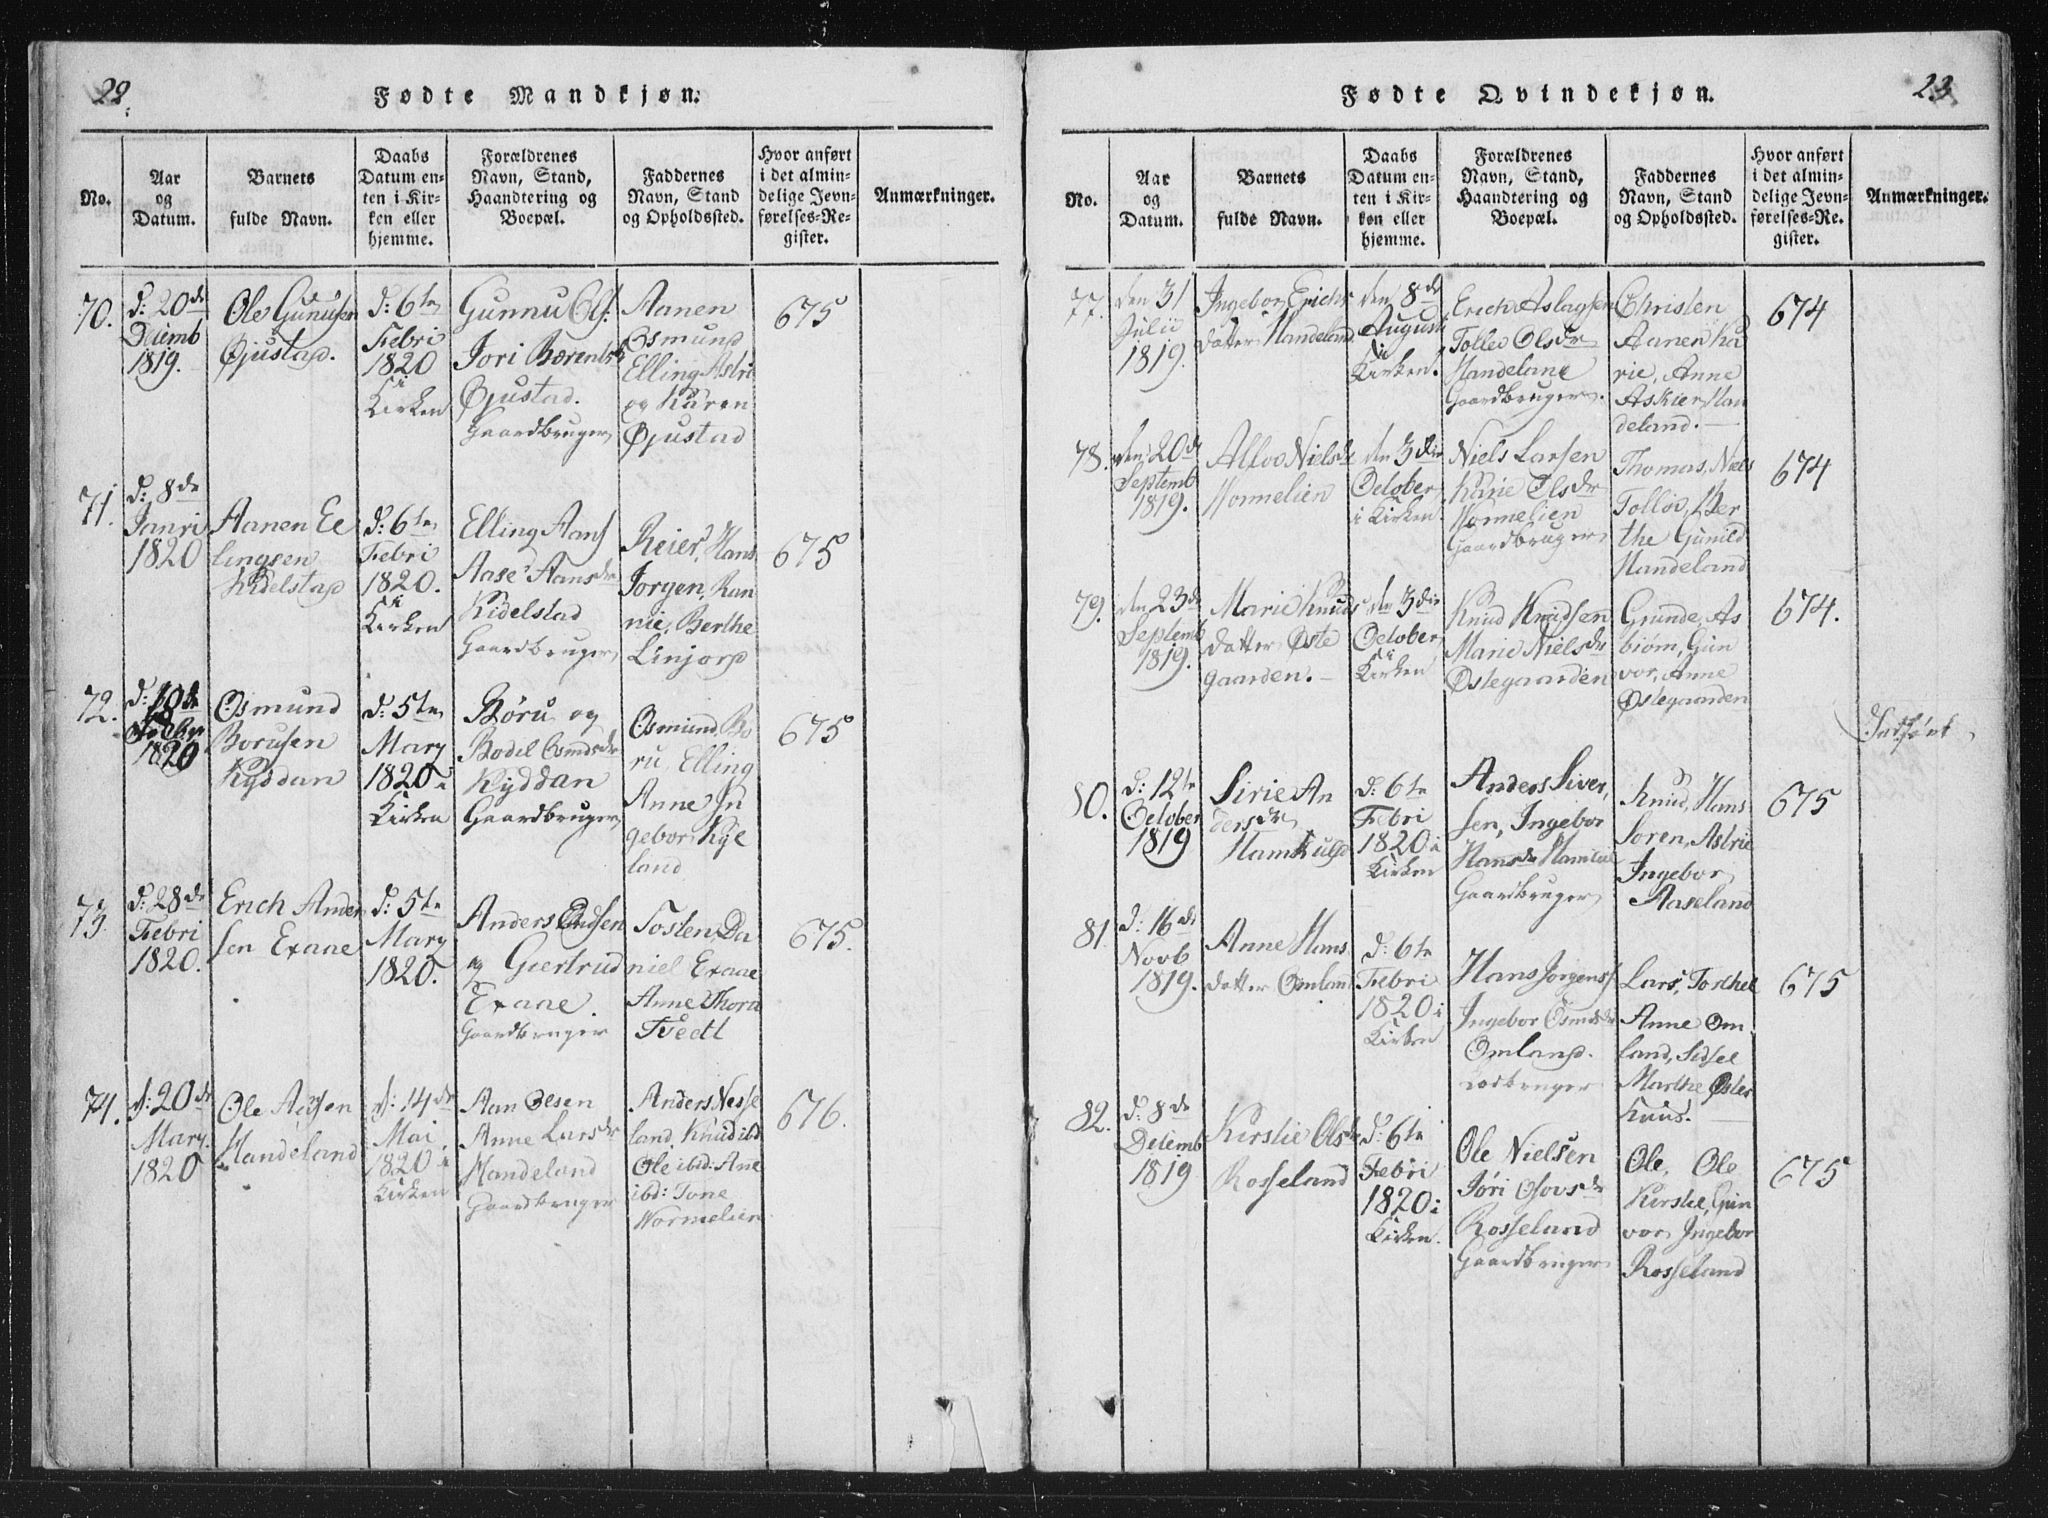 22.
Fødte Mandkjøn.
No.
Aar
og
Datum.
Barnets
fulde Navn.
Daabs
Datum en-
ten i Kir-
ken eller
hjemme.
Forældrenes
Navn, Stand,
Haandtering og
Boepæl.
Faddernes
Navn, Stand
og Opholdssted.
Hvor anført
i det almin-
delige Jevn-
førelses-Re-
gister.
Anmærkninger.
70.
d: 20de
Decemb
1819.
Ole Gunusen
Øjustad.
d: 6te
Febri
1820
i
Kirken
Gunnu Ols:
Jori Børents
Øjustad.
Gaardbruger
Aanen
Osmund
Elling Astri
og Karen
Øjustad
675
71.
d: 8de
Janri
1820
Aanen El
lingsen
Kidelstad
d: 6te
Febri
1820.
i
Kirken
Elling Aans
Aase Aansdr
Kidelstad
Gaardbruger
Reier, Hans
Jorgen, Ran
nie, Berthe
Linjord
675
72.
1820
Osmund
Borusen
Kyddan
d: 5te
Marz
1820 i
Kirken
Børu og
Bodel Osmdsdr
Kyddan
Gaardbruger
Osmund, Bo
ru, Elling
Anne In
gebor Kye
land
675
73.
d: 28de
Febri
1820.
Erich Ander
sen Exane
d: 5te
Marz
1820.
Anders
og Giertrud
Exane.
Gaardbruger
Tosten, Da
niel Exane
Anne Thora
Tvedt
675.
74.
d: 20de
Marz.
1820
Ole Aansen
Handeland
d: 14de
Mai
1820 i
Kirken
Aan Olsen
Anne Larsdr
Handeland
Gaardbruger
Anders Nesse
land, Knud ibd.
Ole ibd: Ane
ibd: Tone
Normelien
676.
23.
Fødte Qvindekjøn.
No.
Aar
og
Datum.
Barnets
fulde Navn.
Daabs
Datum en-
ten i Kir-
ken eller
hjemme.
Forældrenes
Navn, Stand,
Haandtering og
Boepæl.
Faddernes
Navn, Stand
og Opholdssted.
Hvor anført
i det almin-
delige Jevn-
førelses-Re-
gister.
Anmærkninger.
77.
den 31
Julii
1819.
Ingebor Erichs
datter Handeland
den 8de
Augusti
i
Kirken.
Erich Aslagsen
Tollev Olsdr
Handeland
Gaardbruger.
Christen
Aanen Ka
rie, Anne
Askier Han
deland.
674
78.
den 20de
Septemb
1819.
Nielsdr
Honnelien
den 3die
October
i Kirken
Niels Larsen
Karie Olsdr
Honnelien
Gaardbruger
Thomas, Niels
Tolloi, Ber
the Gunild
Handeland
674
79.
den 23de
Septemb
1819.
Marie Knuds
datter Øste
gaarden.
den 3die
October
i
Kirken
Knud Knudsen
Marie Nielsdr
Østegaarden
Grunde, As
biørn, Gun
vor, Anne
Østegaarden
674.
80.
d: 12te
October
1819
Sirie An
dersdr
d: 6te
Febri
1820 i
Kirken
Anders Siver
sen, Ingebor
Hansdr
Gaardbruger
Knud, Hans
Soren, Astrie
Ingebor
Aaseland
675
Indført
81.
d: 16de
Novb
1819.
Anne Hans
datter Omland
d: 6te
Febri
1820 i
Kirken
Hans Jorgens
Ingebor Osmdsdr
Omland.
Lars, Torkel
Anne Om
land, Sidsel
Marthe Øster
Huus.
675
82.
d: 8de
Decemb
1819
Kirstie Olsdr
Rosseland
d: 6te
Febri
1820 i
Kirken.
Ole Nielsen
Jøri Osovsdr
Rosseland
Gaardbruger
Ole, Ole
Kirstie, Gun
vor, Ingebor
Rosseland
675